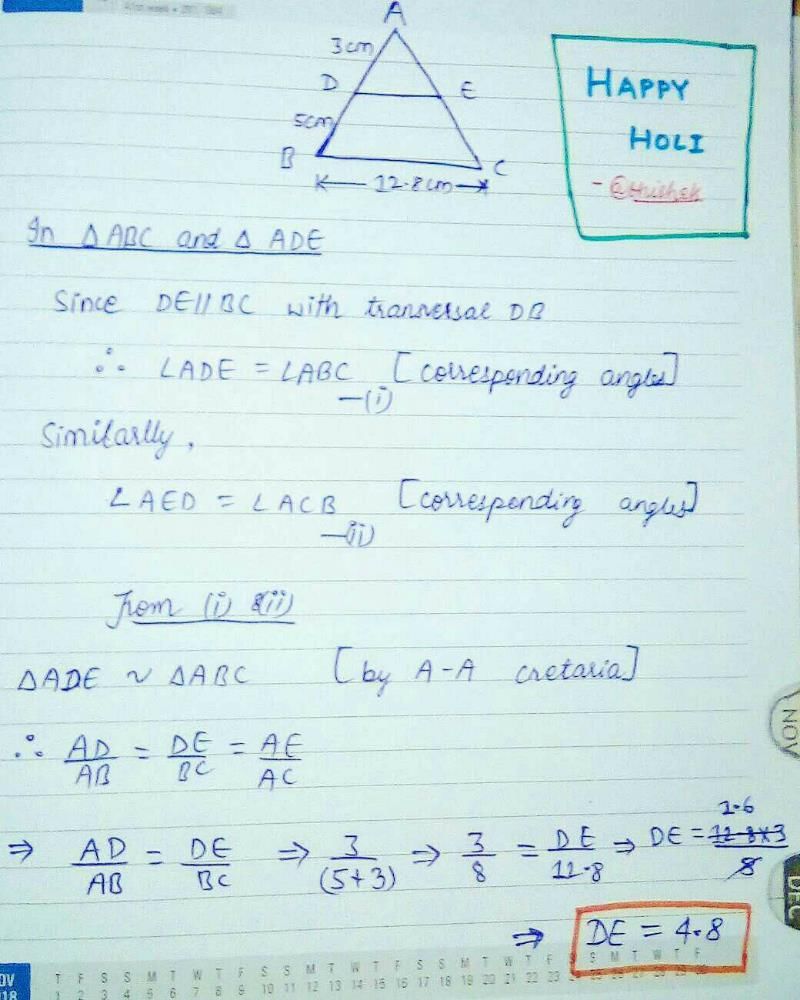 A
3cm
D
E
5cm
B
C
12.8cm
HAPPY
HOLI
In △ABC and △ ADE
Since DE//BC with tranversal DB
∴ ∠ADE = ∠ABC [corresponding angles]
—(i)
Similarlly,
∠AED = ∠ACB [corresponding angles]
—(ii)
From (i) &(ii)
△ADE ~ △ABC [by A-A cretaria]
∴ AD/AB = DE/BC = AE/AC
⇒ AD/AB = DE/BC ⇒ 3/(5+3) ⇒ 3/8 = DE/12.8 ⇒ DE = 12.8×3/8
1.6
⇒ DE = 4.8
NOV
DEC
OV
018
T F S S M T W T F S S M T W T F S S M T W T F S S M T W T F
1 2 3 4 5 6 7 8 9 10 11 12 13 14 15 16 17 18 19 20 21 22 23